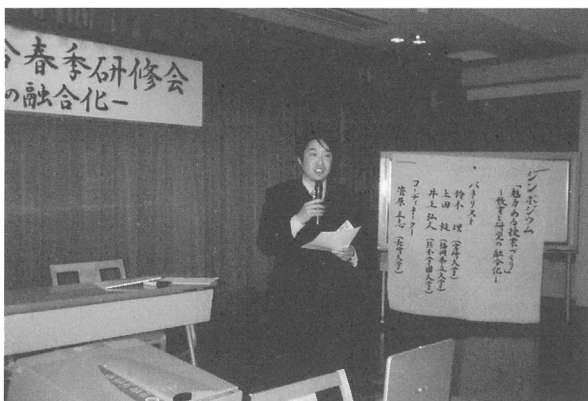 合春季研修会
の融合化ー
シンポジウム
「魅力ある授業づくり」
ー教育と研究の融合化ー
パネリスト
鈴木 理 (宮崎大学)
上田 毅 (福岡県立大学)
井上弘人 (熊本学園大学)
コーディネーター
菅原正志 (長崎大学)